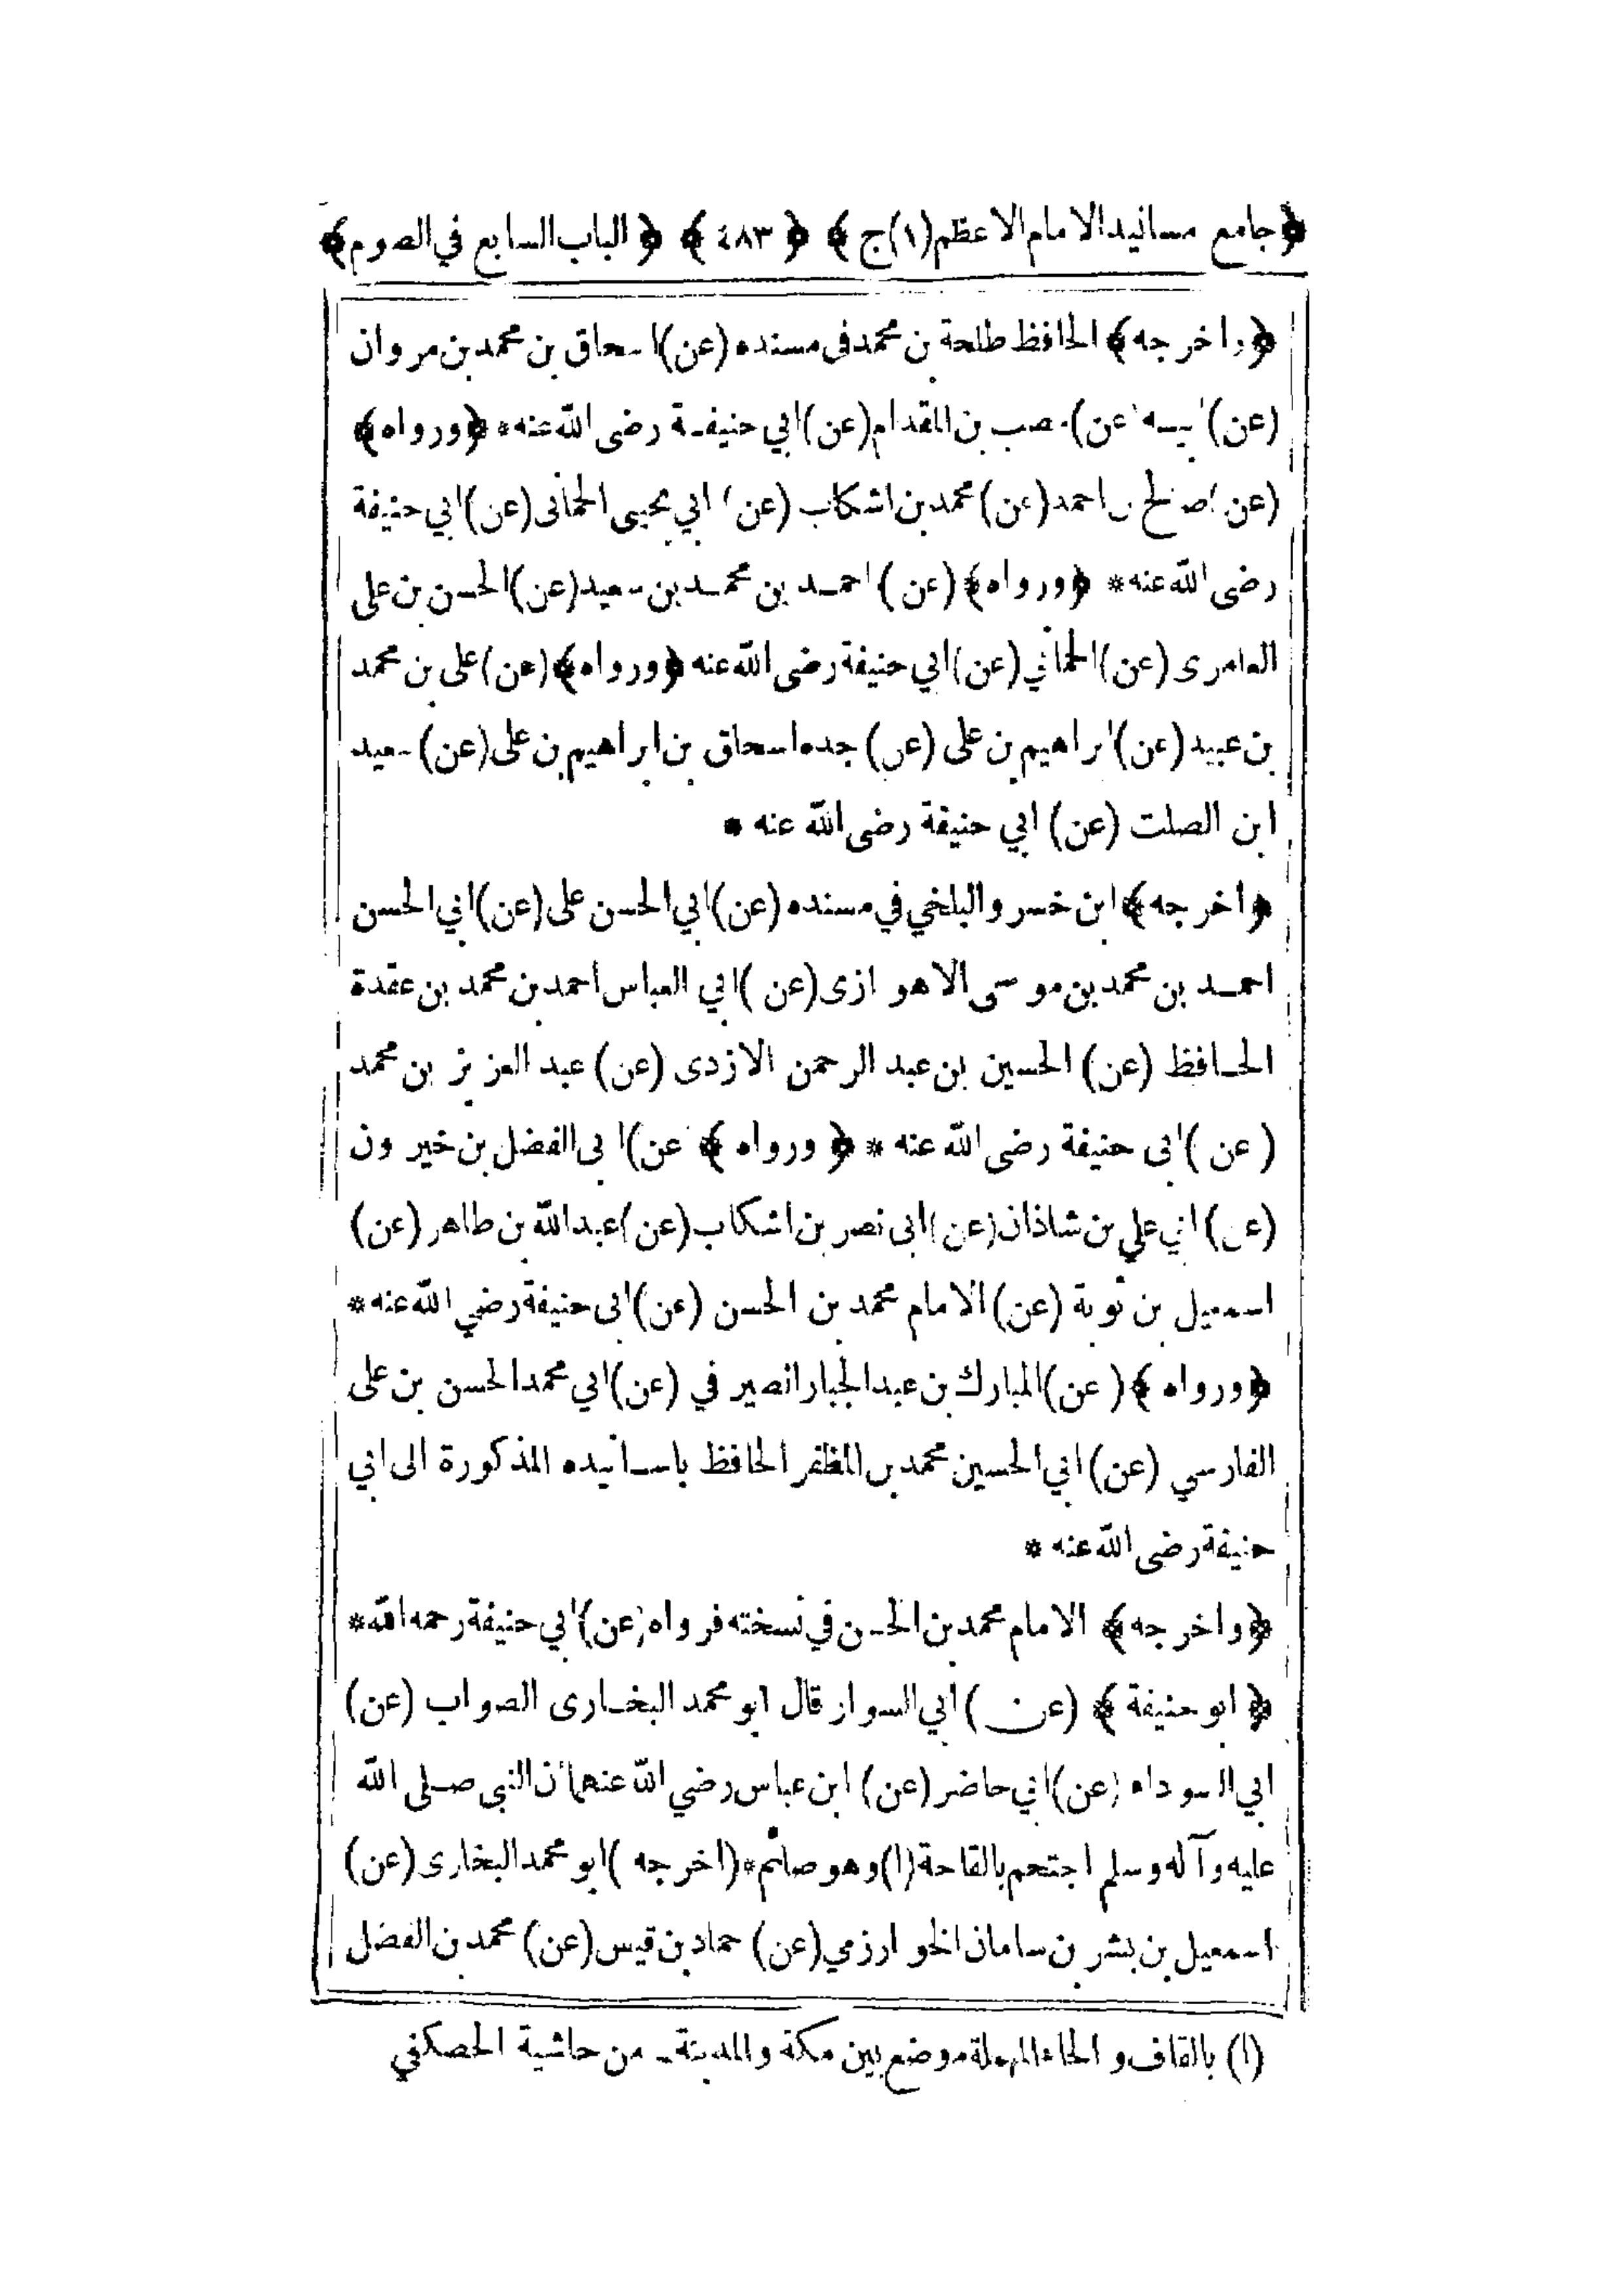 ﴿جامع مسانيد الامام الاعظم(١)ج﴾ ﴿٤٨٣﴾ ﴿الباب السابع في الصوم﴾
﴿واخرجه﴾ الحافظ طلحة بن محمد فى مسنده (عن) اسحاق بن محمد بن مروان
(عن) ابيه (عن) مصعب بن المقدام (عن) ابي حنيفة رضى الله عنه* ﴿ورواه﴾
(عن) صالح بن احمد (عن) محمد بن اشكاب (عن) ابي يحيى الحمانى (عن) ابي حنيفة
رضى الله عنه* ﴿ورواه﴾ (عن) احمد بن محمد بن سعيد (عن) الحسن بن على
العامرى (عن) الحماني (عن) ابي حنيفة رضى الله عنه ﴿ورواه﴾ (عن) على بن محمد
بن عبيد (عن) ابراهيم بن على (عن) جده اسحاق بن ابراهيم بن على (عن) سعيد
ابن الصلت (عن) ابي حنيفة رضى الله عنه *
﴿واخرجه﴾ ابن خسرو البلخي في مسنده (عن) ابي الحسن على (عن) ابي الحسن
احمد بن محمد بن موسى الاهوازى (عن) ابي العباس احمد بن محمد بن عقدة
الحافظ (عن) الحسين بن عبد الرحمن الازدى (عن) عبد العزيز بن محمد
(عن) ابى حنيفة رضى الله عنه * ﴿ورواه﴾ (عن) ابى الفضل بن خيرون
(عن) ابي علي بن شاذان (عن) ابى نصر بن اشكاب (عن) عبد الله بن طاهر (عن)
اسمعيل بن توبة (عن) الامام محمد بن الحسن (عن) ابى حنيفة رضي الله عنه*
﴿ورواه﴾ (عن) المبارك بن عبد الجبار الصيرفي (عن) ابي محمد الحسن بن على
الفارسي (عن) ابي الحسين محمد بن المظفر الحافظ باسانيده المذكورة الى ابي
حنيفة رضى الله عنه *
﴿واخرجه﴾ الامام محمد بن الحسن في نسخته فرواه (عن) ابي حنيفة رحمه الله*
﴿ابو حنيفة﴾ (عن) ابي السوار قال ابو محمد البخارى الصواب (عن)
ابي السوداء (عن) ابي حاضر (عن) ابن عباس رضي الله عنهما ان النبي صلى الله
عليه وآله وسلم احتجم بالقاحة (١) وهو صائم* (اخرجه) ابو محمد البخارى (عن)
اسمعيل بن بشر بن سامان الخوارزمي (عن) حماد بن قيس (عن) محمد بن الفضل
(١) بالقاف و الحاء المهملة موضع بين مكة والمدينة ـ من حاشية الحصكفي